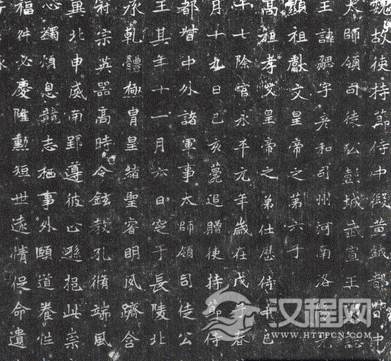 魏故使持節侍中假黃鉞都督中
太師領司徒公彭城武宣王
王諱勰字彥和司州河南洛
顯祖獻文皇帝之第六子
高祖孝文皇帝之第仕歷侍中已
十七除官永平元年歲在戊子春
月十九日己亥薨追贈使持節侍
都督中外諸軍事太師領司徒公
王其年十一月六日窆于長陵北
承乾體極胄皇緒聖睿明夙躋含
尉宗英器高時令鉉教孔脩端風
巽北申威南郢遵彼止遜挹此崇
心獨頌恩寵志栖事外頤道養恬
福件必慶隆勳短世遠情促命遺
汉程网
HTTPCN.COM